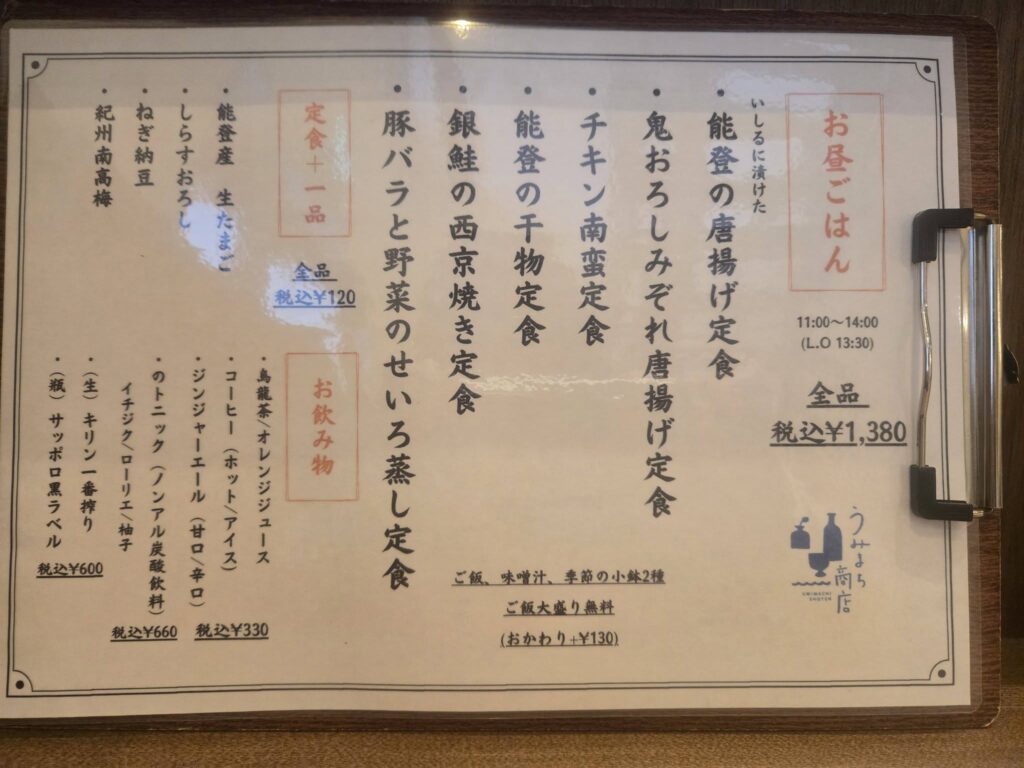 お昼ごはん
11:00~14:00
(L.O 13:30)
全品
税込¥1,380
うみまち商店
UMIMACHI
SHOTEN
いしるに漬けた
・能登の唐揚げ定食
・鬼おろしみぞれ唐揚げ定食
・チキン南蛮定食
・能登の干物定食
・銀鮭の西京焼き定食
・豚バラと野菜のせいろ蒸し定食
ご飯、味噌汁、季節の小鉢2種
ご飯大盛り無料
(おかわり+¥130)
定食+一品
全品
税込¥120
・能登産 生たまご
・しらすおろし
・ねぎ納豆
・紀州南高梅
お飲み物
・烏龍茶/オレンジジュース
・コーヒー(ホット/アイス)
・ジンジャーエール(甘口/辛口)
税込¥330
・のトニック(ノンアル炭酸飲料)
イチジク/ローリエ/柚子
税込¥660
・(生)キリン一番搾り
・(瓶)サッポロ黒ラベル
税込¥600